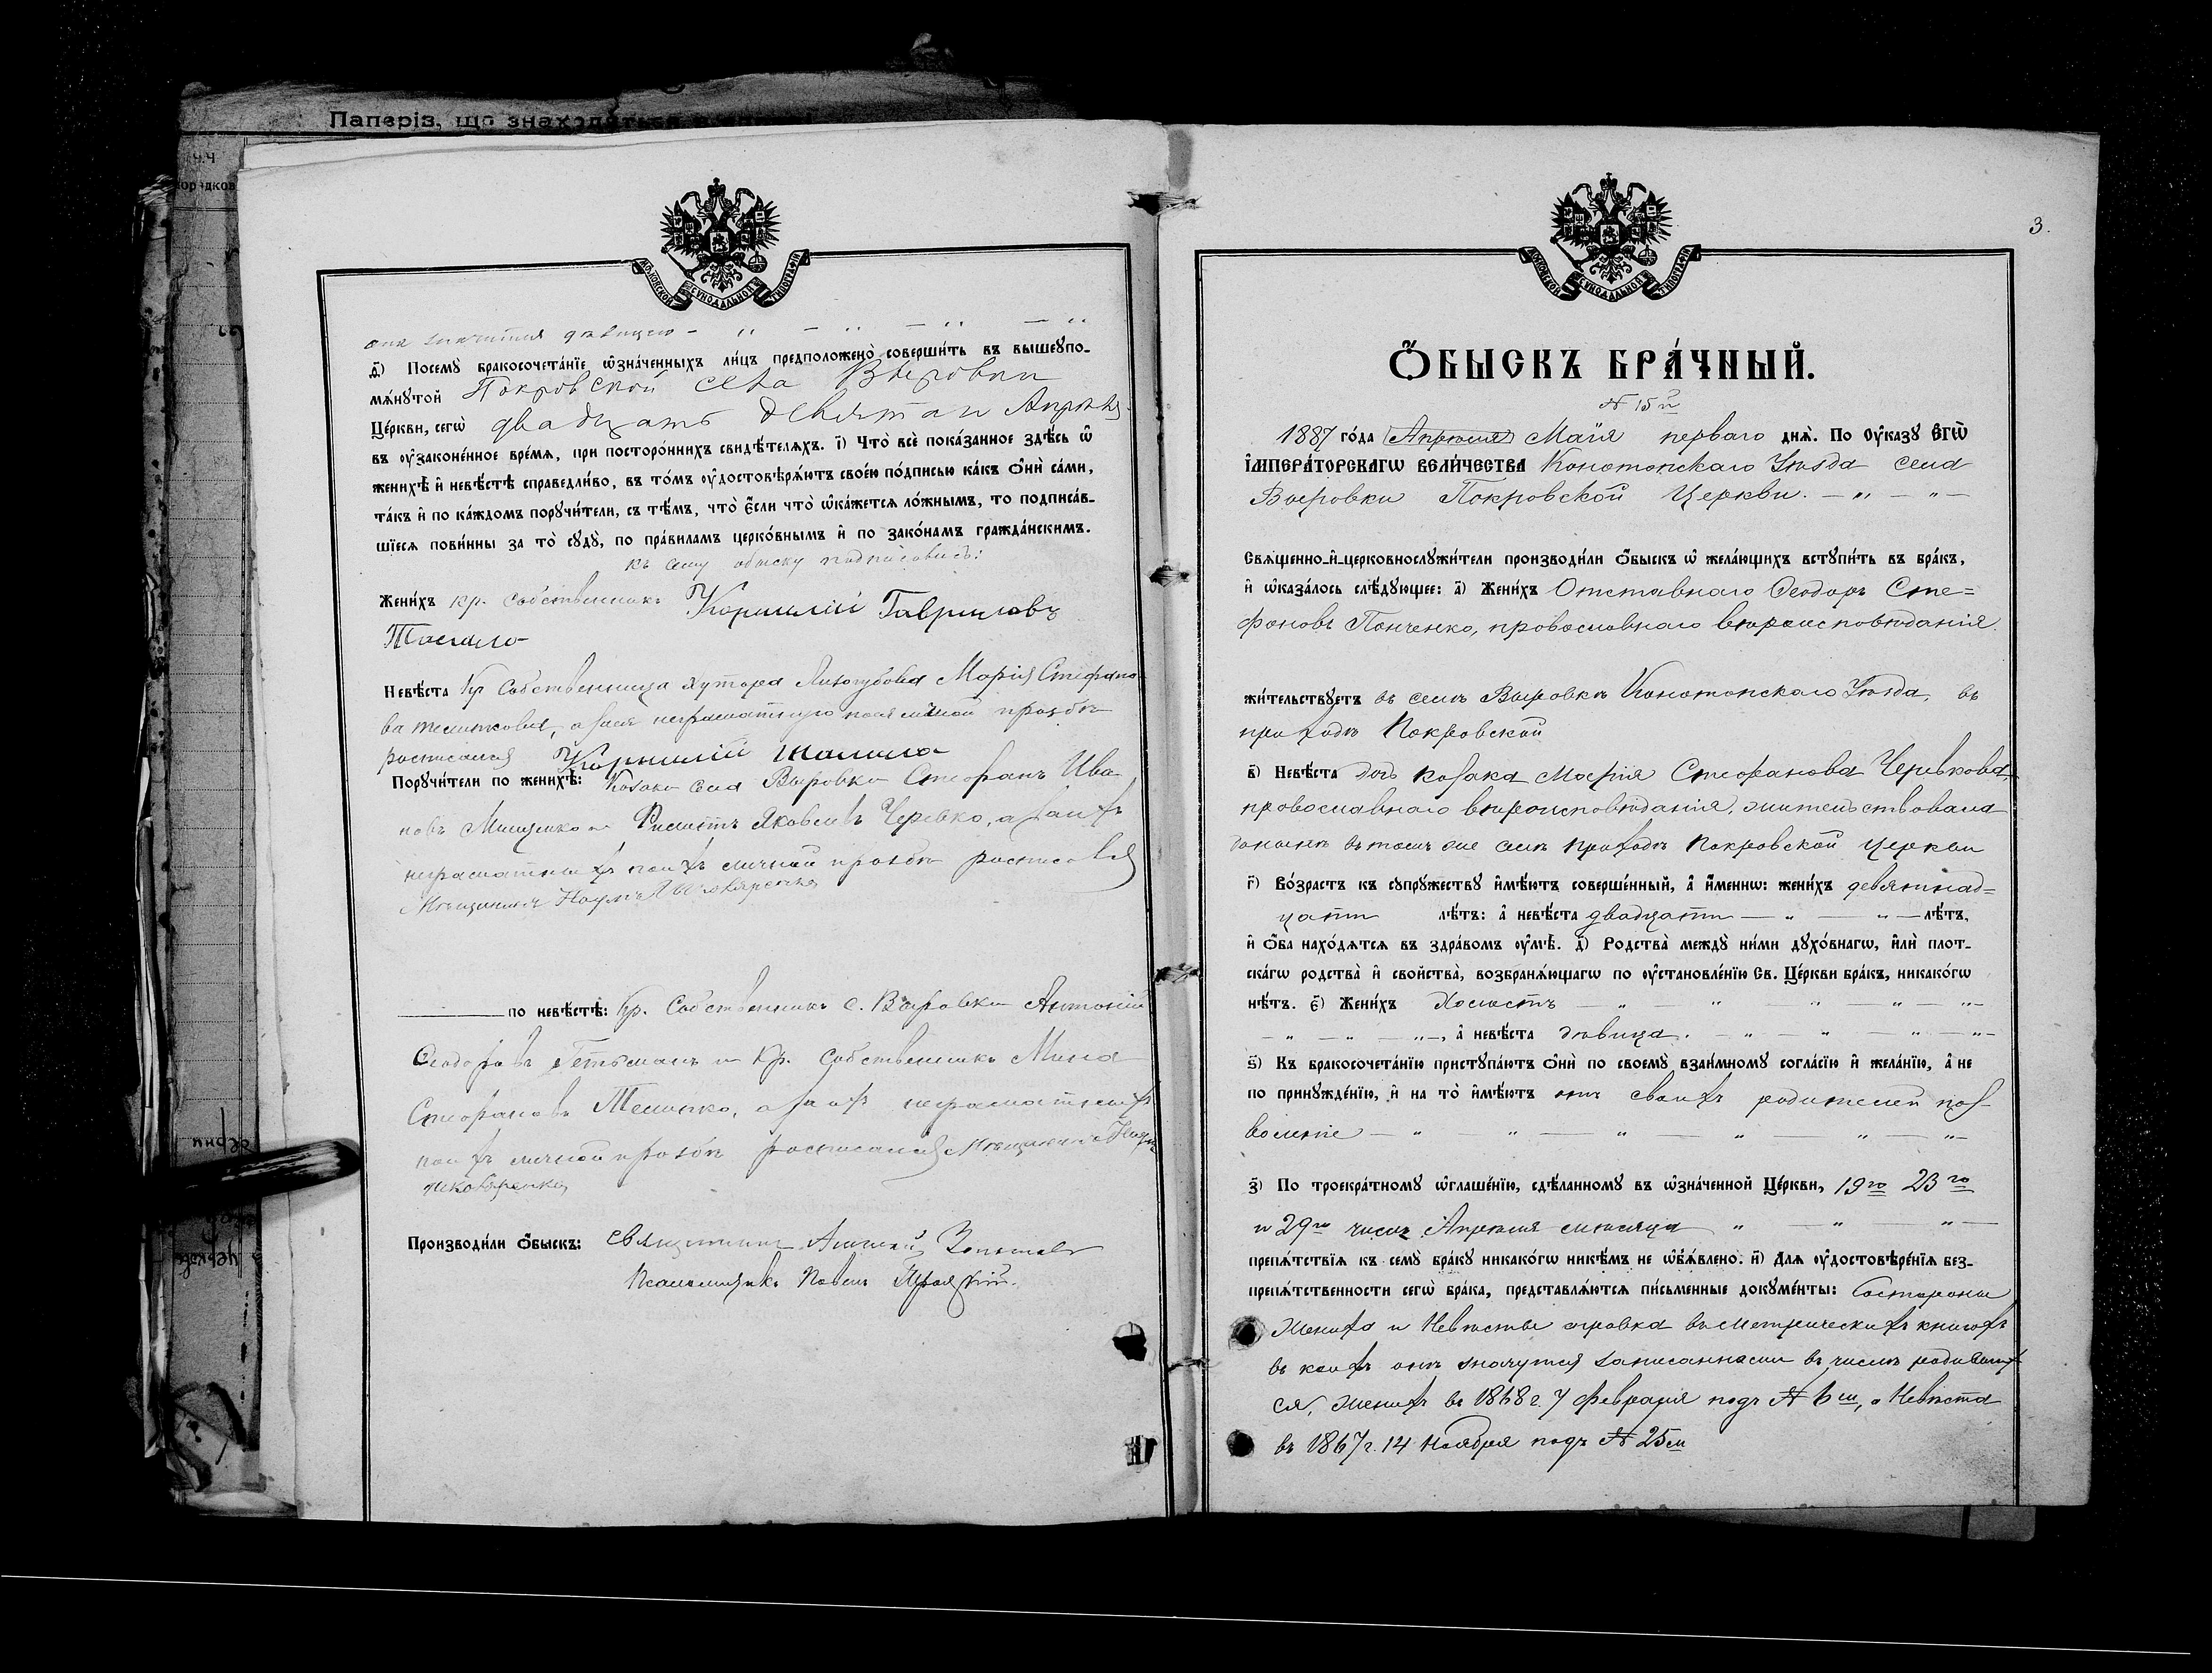 Паперіз, що знаходяться
МОСКОВСКОЙ СѴНОДАЛЬНОЙ ТИПОГРАФІИ
она значится дѣвицею - " - " - " - "
д҃) Посемꙋ̀ бракосочета́нїе ѡ҆зна́ченныхъ ли́цъ предположено̀ соверши́ть въ вышеꙋпо-
мѧ́нꙋтой Покровской села Выровки
Це́ркви, сегѡ̀ двадцать девятаго Апрѣля
въ ᲂу҆законе́нное вре́мѧ, при посторо́ннихъ свидѣ́телѧхъ. і҃) Что̀ всѐ пока́занное здѣ́сь ѡ҆
женихѣ̀ и҆ невѣ́стѣ справедли́во, въ то́мъ ᲂу҆достовѣрѧ́ютъ свое́ю по́дписью ка́къ ѻ҆нѝ са́ми,
та́къ и҆ по ка́ждомъ порꙋчи́тели, съ тѣ́мъ, что̀ є҆́сли что̀ ѡ҆ка́жетсѧ ло́жнымъ, то подписа́в-
шїесѧ пови́нны за то̀ сꙋдꙋ̀, по пра́виламъ церко́внымъ и҆ по зако́намъ гражда́нскимъ.
къ сему обыску подписались:
Жени́хъ кр. собственникъ Корнилій Гавриловъ
Томило
Невѣ́ста кр собственница хутора Лизогубова Марія Стефано
ва Темникова, а за нея неграмотную по ея личной прозьбѣ
росписался Корнилій Томило
Порꙋчи́тели по женихѣ̀: козаки села Выровки Стефанъ Ива
новъ Мищенко и Филиппъ Яковлевъ Черевко, а за ихъ
неграмотныхъ по ихъ личной прозьбѣ росписался
Мѣщанинъ Наумъ
по невѣ́стѣ: Кр. собственникъ с. Выровки Антоній
Ѳеодоровъ Гетьманъ и кр. собственникъ Мина
Стефановъ Темник‍о, а за ихъ неграмотныхъ
по ихъ личной прозьбѣ росписался Мѣщанинъ Наумъ
Производи́ли ѻ҆́быскъ: Священникъ Алексѣй
Псаломщикъ Павелъ
3.
МОСКОВСКОЙ СѴНОДАЛЬНОЙ ТИПОГРАФІИ
Ѻ҆́БЫСКЪ БРА́ЧНЫЙ.
№ 15й
1887 го́да Апрѣля Маія перваго днѧ̀. По ᲂу҆казꙋ Є҆ГѠ̀
І҆МПЕРА́ТОРСКАГѠ ВЕЛИ́ЧЕСТВА Конотопскаго Уѣзда села
Выровки Покровской Церкви. — " — " —
Свѧще́нно-и҆-церковнослꙋжи́тели производи́ли ѻ҆́быскъ ѡ҆ жела́ющихъ встꙋпи́ть въ бра́къ,
и҆ ѡ҆каза́лось слѣ́дꙋющее: а҃) Жени́хъ Отставного Ѳеодоръ Сте=
фановъ Панченко, православнаго вѣроисповѣданія
жи́тельствꙋетъ въ селѣ Выровкѣ Конотопскаго Уѣзда, въ
приходѣ Покровской
в҃) Невѣ́ста дочь козака Марія Стефанова Черевкова
православнаго вѣроисповѣданія, жительствовала
донынѣ въ томъ же селѣ приходѣ Покровской Церкви
г҃) Во́зрастъ къ сꙋпрꙋ́жествꙋ и҆мѣ́ютъ соверше́нный, а҆̀ и҆́меннѡ: жени́хъ девятнад=
цати лѣ́тъ: а҆̀ невѣ́ста двадцати — " — " — лѣ́тъ,
и҆ ѻ҆́ба нахо́дѧтсѧ въ здра́вомъ ᲂу҆мѣ̀. д҃) Родства̀ междꙋ̀ ни́ми дꙋхо́внагѡ, и҆лѝ плот-
ска́гѡ родства̀ и҆ свойства̀, возбранѧ́ющагѡ по ᲂу҆становле́нїю Св. Це́ркви бра́къ, никако́гѡ
нѣ́тъ. є҃) Жени́хъ Холостъ — " — " — " — " — "-
— " — " — "—, а҆̀ невѣ́ста дѣвица. — " — " — " — "—
ѕ҃) Къ бракосочета́нїю пристꙋпа́ютъ ѻ҆нѝ по своемꙋ̀ взаи́мномꙋ согла́сїю и҆ жела́нїю, а҆̀ не
по принꙋжде́нїю, и҆ на то̀ и҆мѣ́ютъ отъ своихъ родителей поз-
воленіе — " — " — " — " — " — "—
з҃) По троекра́тномꙋ ѡ҆глаше́нїю, сдѣ́ланномꙋ въ ѡ҆зна́ченной Це́ркви, 19го 23го
и 29го числъ Апрѣля мѣсяца " — " — " —
препѧ́тствїѧ къ семꙋ̀ бра́кꙋ никако́гѡ никѣ́мъ не ѡ҆б̾ѧ́влено. и҃) Длѧ ᲂу҆достовѣре́нїѧ без-
препѧ́тственности сегѡ̀ бра́ка, представлѧ́ютсѧ пи́сьменные докꙋме́нты: Состороны
жениха и Невѣсты справка въ метрическихъ книгахъ
въ коихъ они значутся записанными въ числѣ родивших
ся, женихъ въ 1868 г. 7 Февраля подъ № 6м, а Невѣста
въ 1867 г. 14 Ноября подъ № 25м